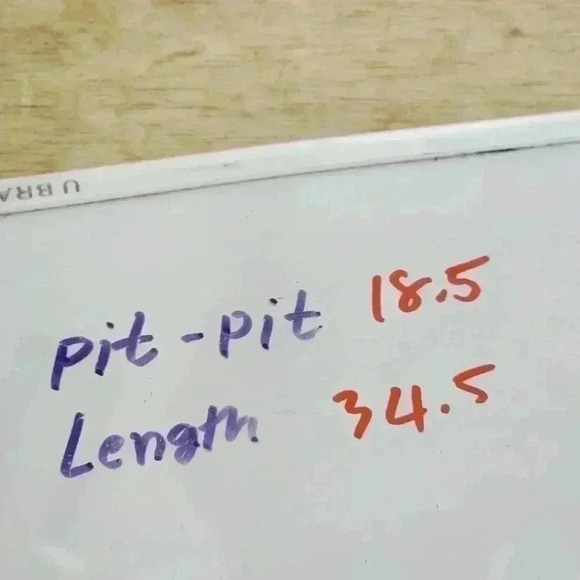 pit - pit 18.5
Length 34.5